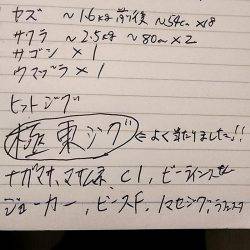 ヤズ 〜1.6kg前後 〜54cm ×18
サワラ 〜2.5kg 〜80cm × 2
サゴシ × 1
ウマヅラ × 1
ヒットジグ
極東ジグ ← よく当たりました!!
ナガマサ, マサムネ, C1, ビーラインスロー
ジョーカー, ピースF,